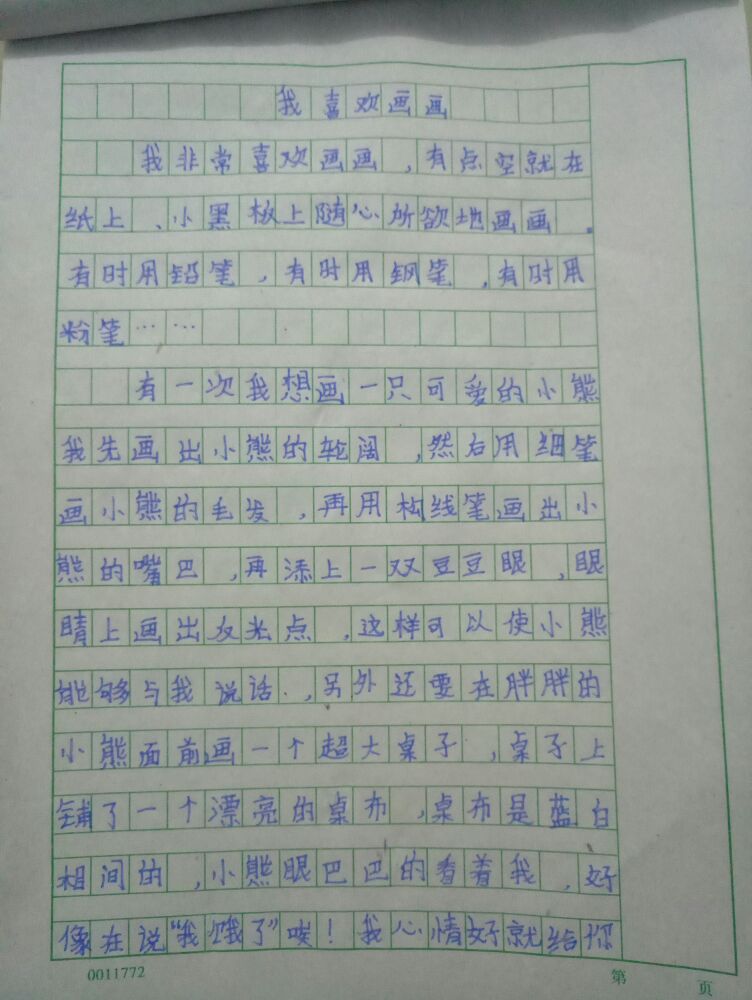 我喜欢画画
我非常喜欢画画，有点空就在
纸上、小黑板上随心所欲地画画。
有时用铅笔，有时用钢笔，有时用
粉笔……
有一次我想画一只可爱的小熊
我先画出小熊的轮阔，然后用细笔
画小熊的毛发，再用构线笔画出小
熊的嘴巴，再添上一双豆豆眼，眼
睛上画出反光点，这样可以使小熊
能够与我说话.，另外还要在胖胖的
小熊面前画一个超大桌子，桌子上
铺了一个漂亮的桌布，桌布是蓝白
相间的，小熊眼巴巴的看着我，好
像在说“我饿了”唉！我心情好就给你
0011772 第 页